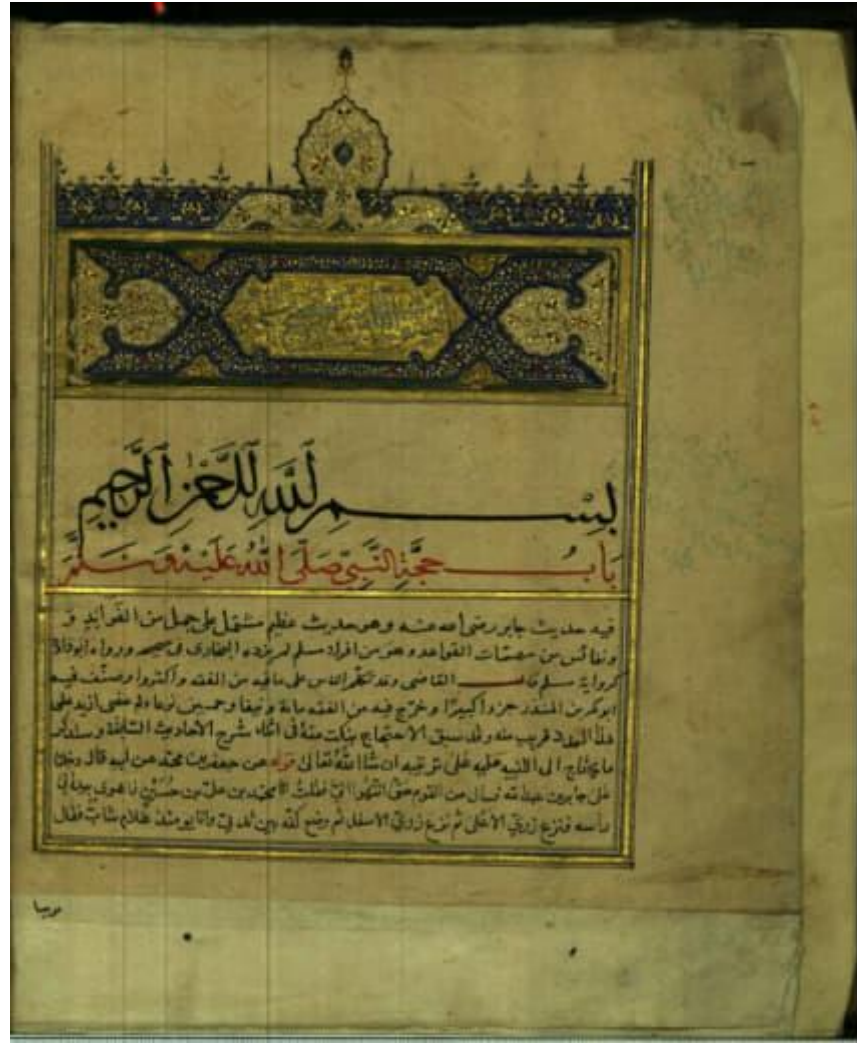 بِسْمِ اللَّهِ الرَّحْمٰنِ الرَّحِيمِ
بَابُ حجَّةِ النَّبِيِّ صَلَّى اللهُ عَلَيْهِ وَسَلَّمَ
فيه حديث جابر رضى الله عنه وهو حديث عظيم مشتمل على جمل من الفوايد و
ونفائس من مهمات القواعد وهو من افراد مسلم لم يروه البخارى فى صحيحه ورواه ابو داود
كرواية مسلم قال القاضى وقد تكلم الناس على ما فيه من الفقه وأكثروا وصنّف فيه
ابو بكر بن المنذر جزوا كبيرًا وخرّج فيه من الفقه مائة ونيفا وخمسين نوعا ولو تقصى لزيد على
هذا العدد قريب منه وقد سبق الاحتجاج بنكت منه فى اثناء شرح الاحاديث السابقة وسنذكر
ما يحتاج الى التنبيه عليه على ترتيبه ان شا اللهُ تعالى قوله عن جعفر بن محمد عن ابيه قال دخلنا
على جابر بن عبد الله فسال عن القوم حتى انتهى الىّ فقلت انا محمد بن على بن حُسَيْن فاهوى بيده الى
رأسه فنزع زرّى الاعلى ثم نزع زرّى الاسفل ثم وضع كفّه بين ثديىّ وانا يومئذ غلام شابّ فقال